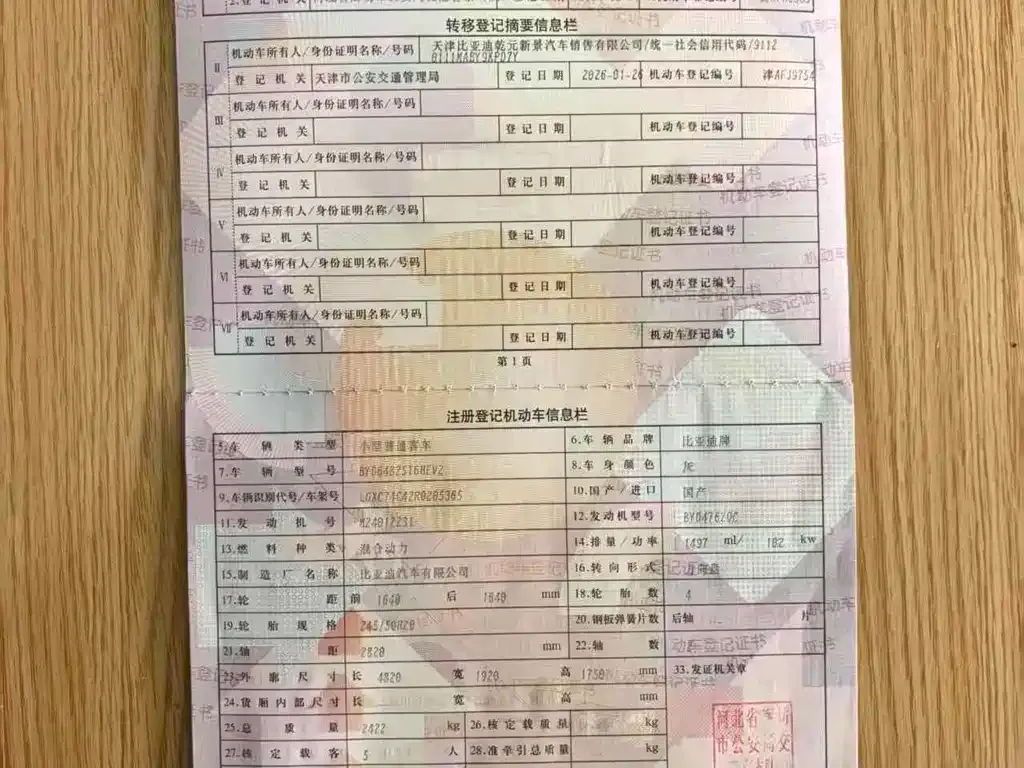 转移登记摘要信息栏
Ⅱ 机动车所有人/身份证明名称/号码 天津比亚迪乾元新景汽车销售有限公司/统一社会信用代码/9112
0111MABY9KPD7Y
登记机关 天津市公安交通管理局 登记日期 2026-01-26 机动车登记编号 津AFJ9754
Ⅲ 机动车所有人/身份证明名称/号码
登记机关 登记日期 机动车登记编号
Ⅳ 机动车所有人/身份证明名称/号码
登记机关 登记日期 机动车登记编号
Ⅴ 机动车所有人/身份证明名称/号码
登记机关 登记日期 机动车登记编号
Ⅵ 机动车所有人/身份证明名称/号码
登记机关 登记日期 机动车登记编号
Ⅶ 机动车所有人/身份证明名称/号码
登记机关 登记日期 机动车登记编号
第1页
注册登记机动车信息栏
5.车辆类型 小型普通客车 6.车辆品牌 比亚迪牌
7.车辆型号 BYD6482ST6HEV2 8.车身颜色 灰
9.车辆识别代号/车架号 LGXC74C42R0285365 10.国产/进口 国产
11.发动机号 12.发动机型号 BYD476ZQC
13.燃料种类 混合动力 14.排量/功率 1497 ml/ 102 kw
15.制造厂名称 比亚迪汽车有限公司 16.转向形式 方向盘
17.轮距 前 1640 后 1640 mm 18.轮胎数 4
19.轮胎规格 245/50R20 20.钢板弹簧片数 后轴 片
21.轴距 2820 mm 22.轴数
23.外廓尺寸 长 4820 宽 1920 高 1750 mm 33.发证机关章
24.货厢内部尺寸 长 宽 高 mm
25.总质量 2422 kg 26.核定载质量 kg
27.核定载客 5 人 28.准牵引总质量 kg